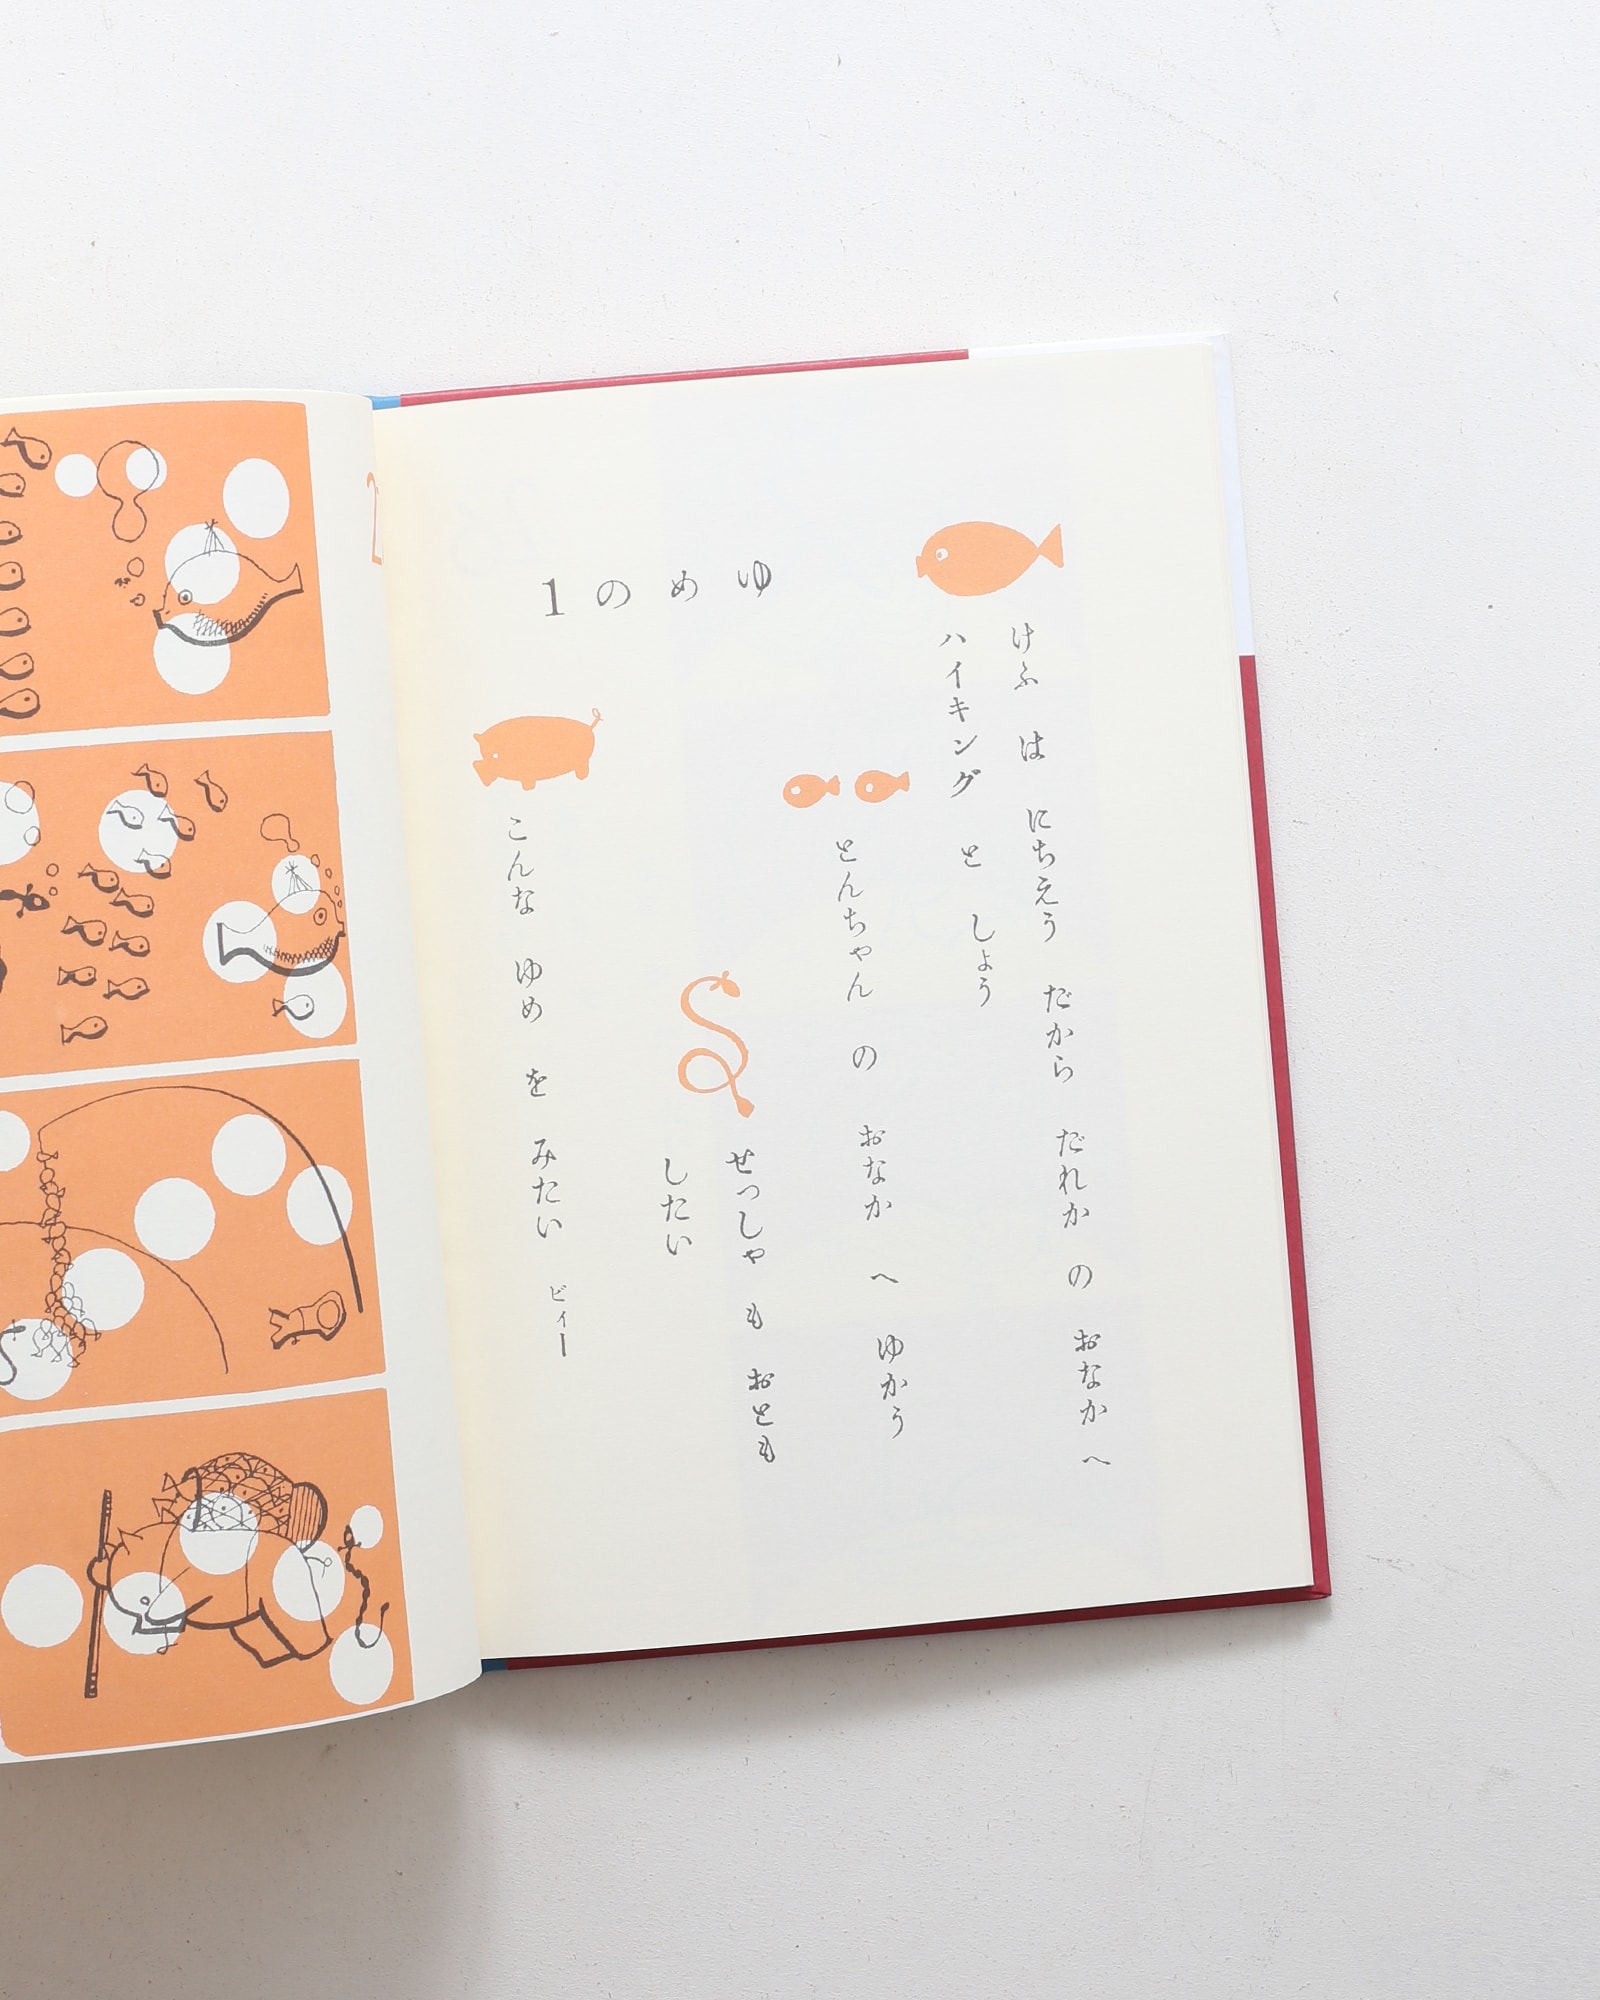 ゆめの1
けふ は にちえう だから だれか の おなか へ
ハイキング と しよう
とんちゃん の おなか へ ゆかう
せっしゃ も おとも
したい
こんな ゆめ を みたい ビィー